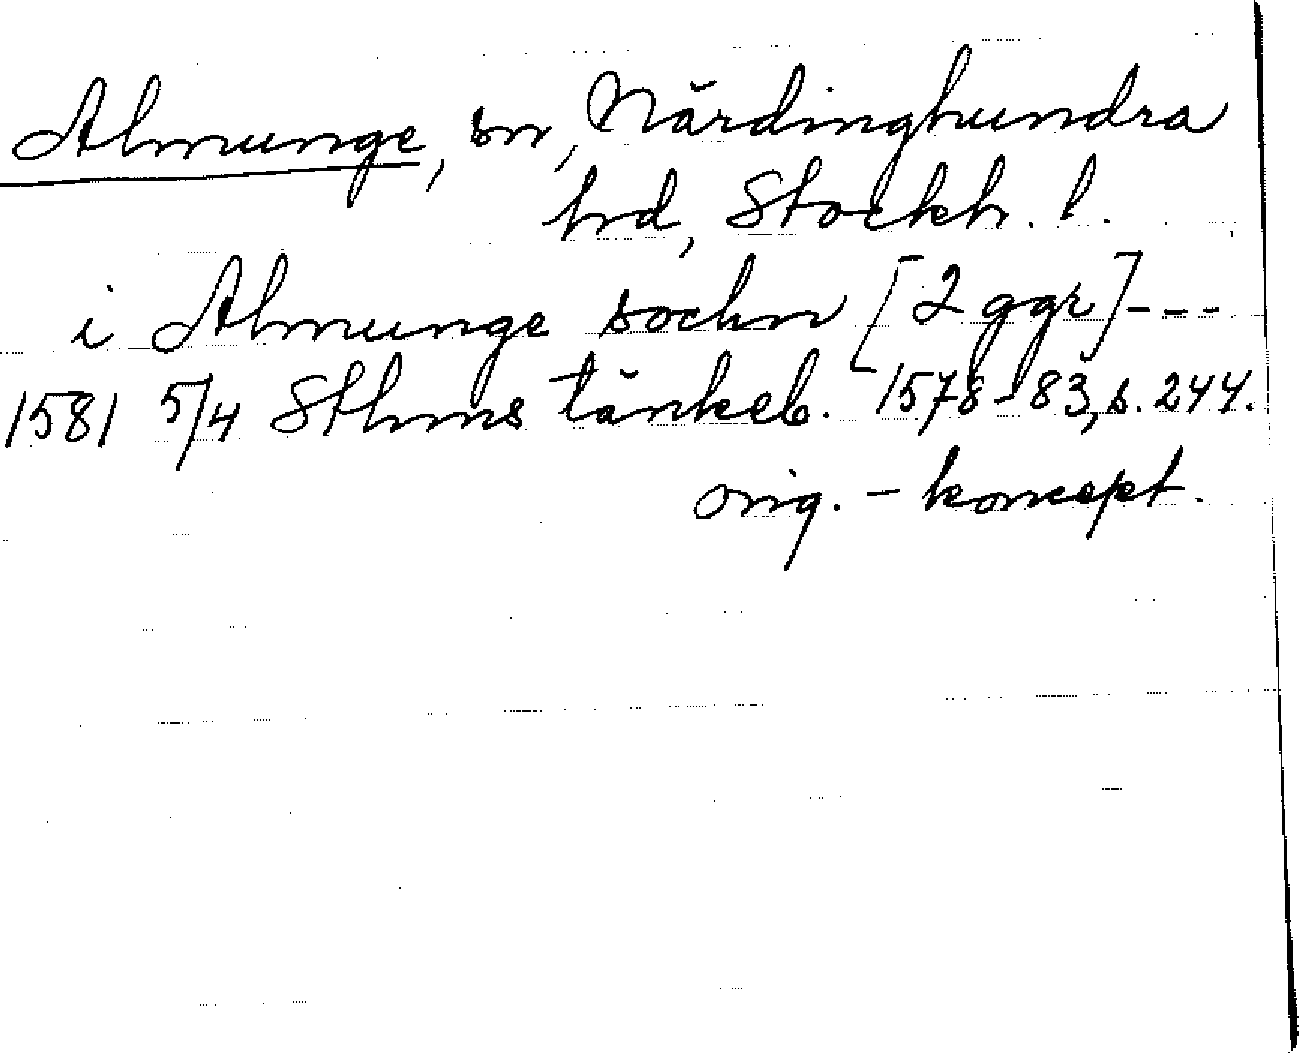 Almunge, sn, Närdinghundra
hrd, Stockh. l.
i Almunge sochn [2 ggr]---
1581 5/4 Sthms tänkeb. 1578-83, s. 244.
orig. - koncept.